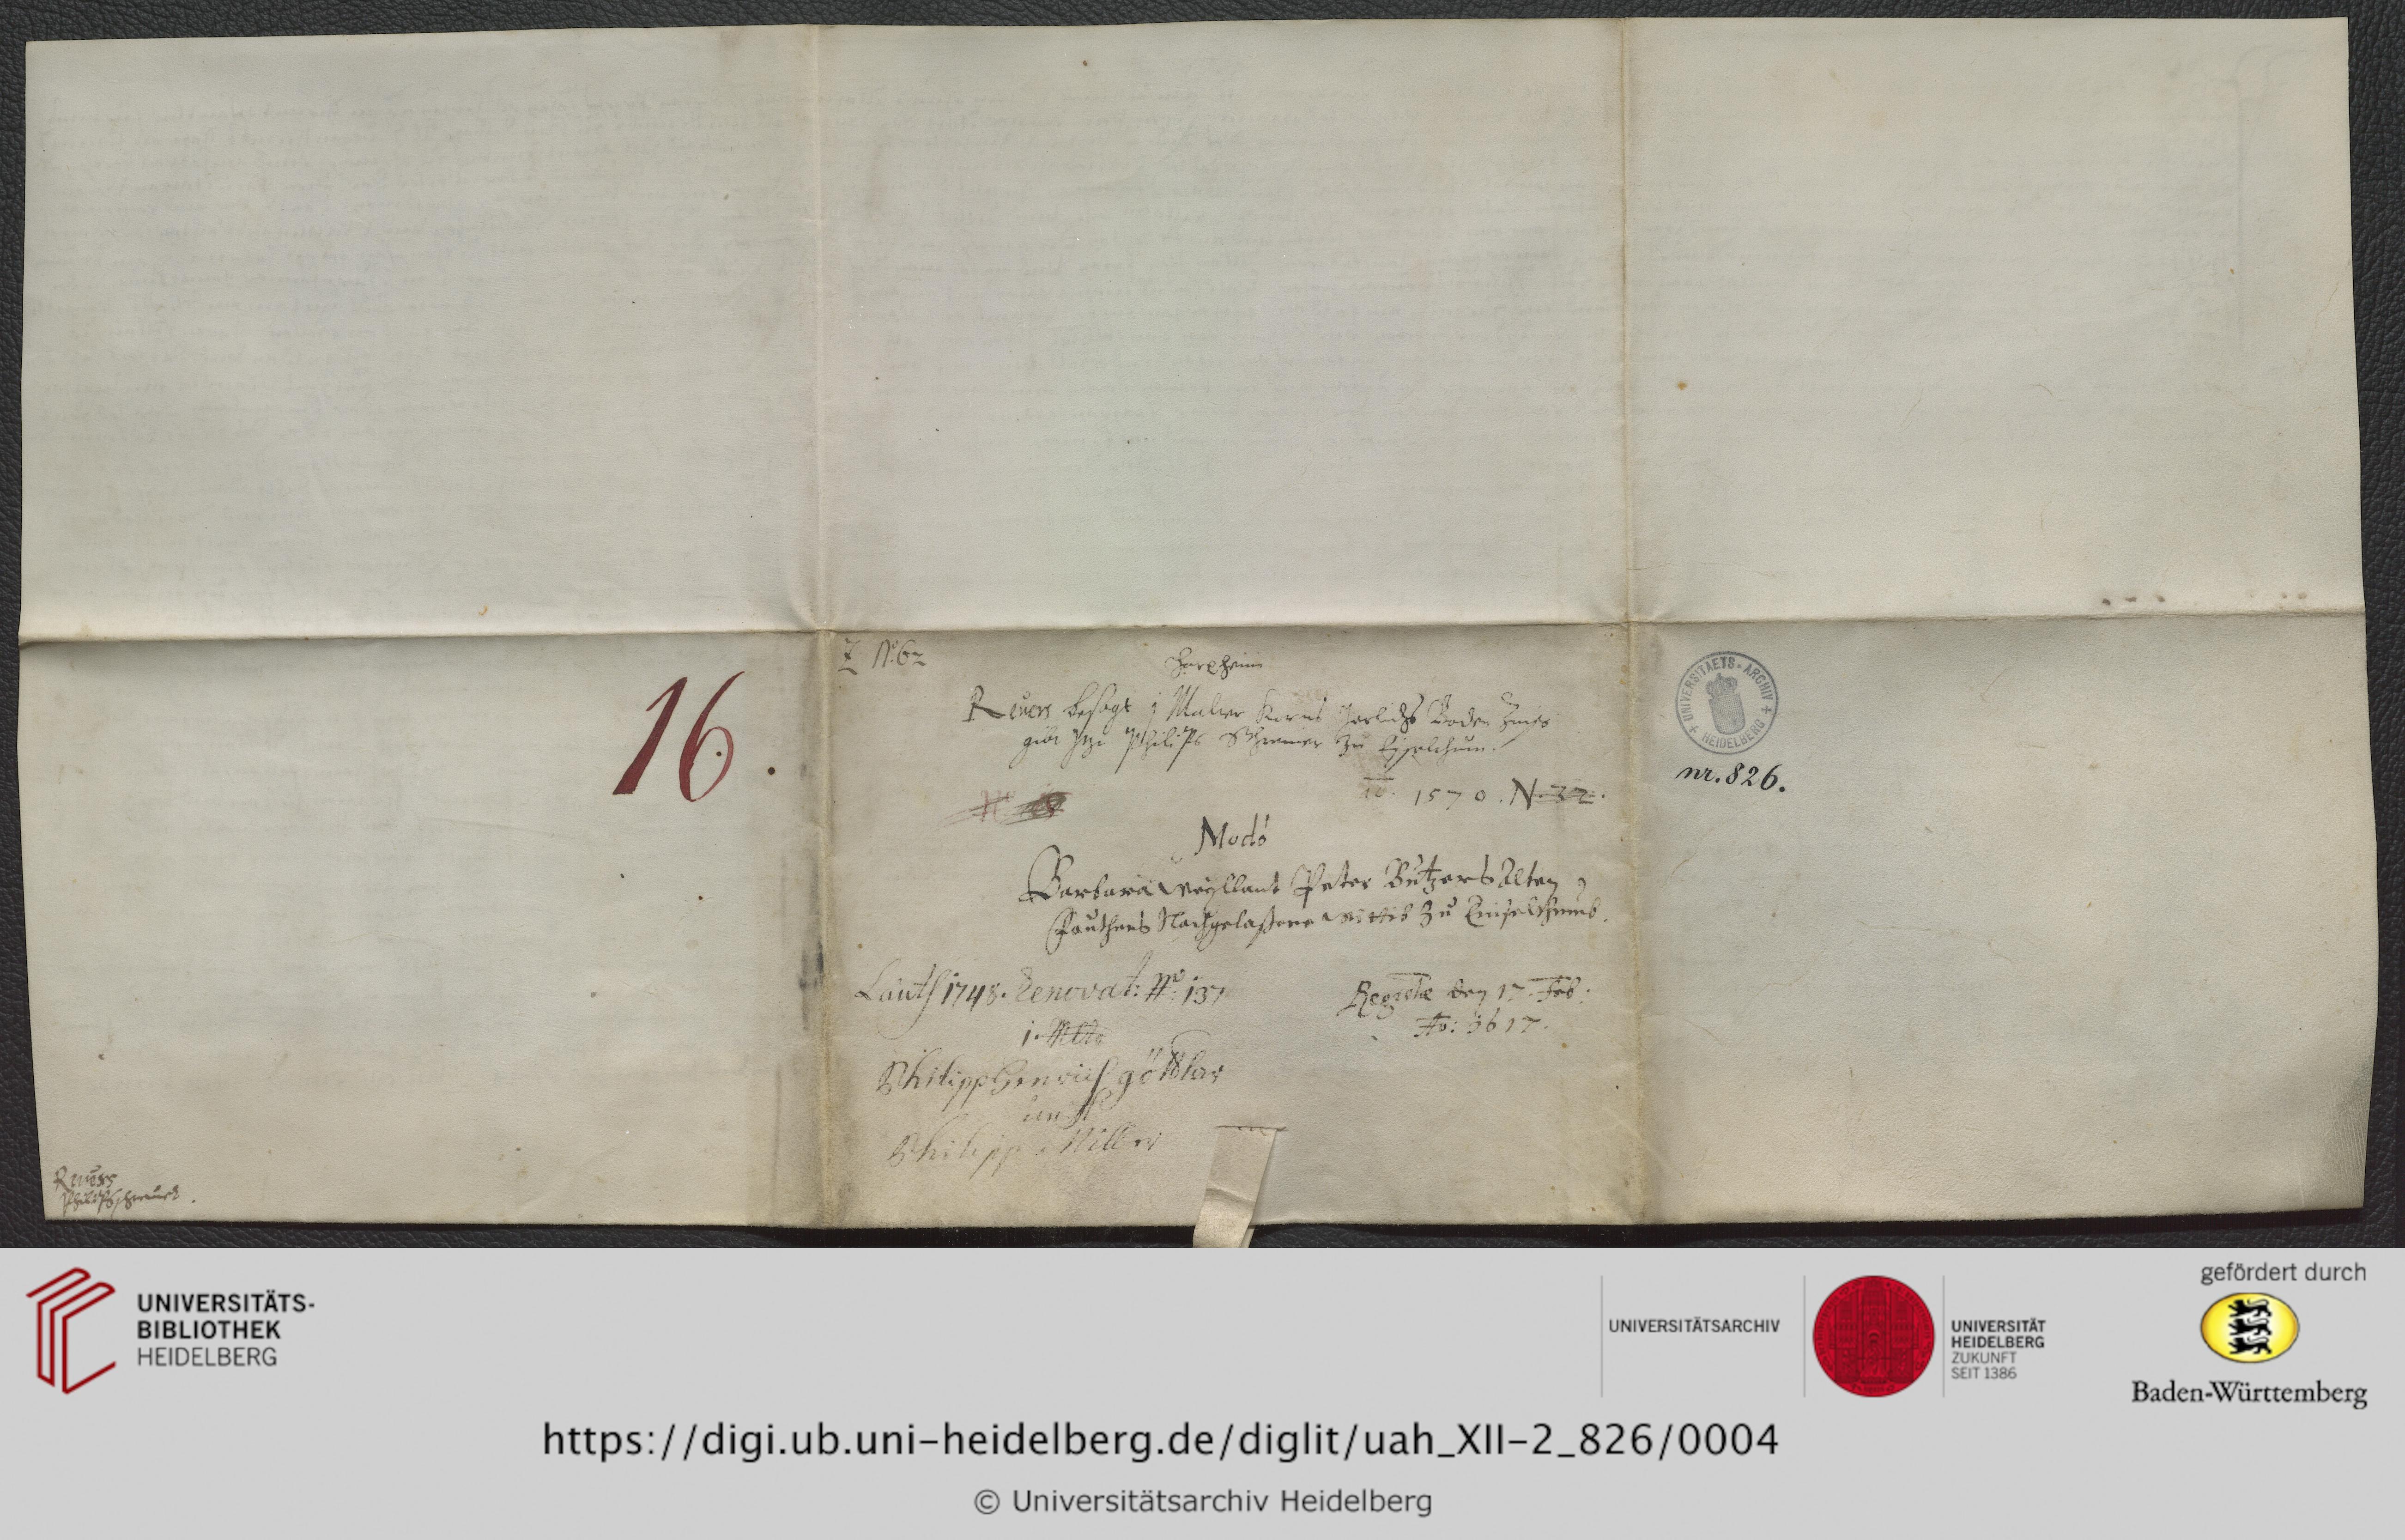 Z N.º 62
Harxheim
Reuers besagt j Malter Korns Jerlichs Boden Zinß
gibt Jtzt Philips Schremer zu Eysselthum.
1570. N. 32.
Modò
Barbara weyllant Peter Bützers Alten
Fauthens Nachgelaßene wittib Zu Einselthumb.
Lauth 1748. Renovat: Nº: 137
j. Mltr
Philipp Henrich göttler
und
Philipp Miller
Registre den 17. Feb:
Ao: 3617.
16.
UNIVERSITAETS-ARCHIV
HEIDELBERG
nr. 826.
Reuers
UNIVERSITÄTS-
BIBLIOTHEK
HEIDELBERG
UNIVERSITÄTSARCHIV
UNIVERSITÄT
HEIDELBERG
ZUKUNFT
SEIT 1386
gefördert durch
Baden-Württemberg
https://digi.ub.uni-heidelberg.de/diglit/uah_XII-2_826/0004
© Universitätsarchiv Heidelberg